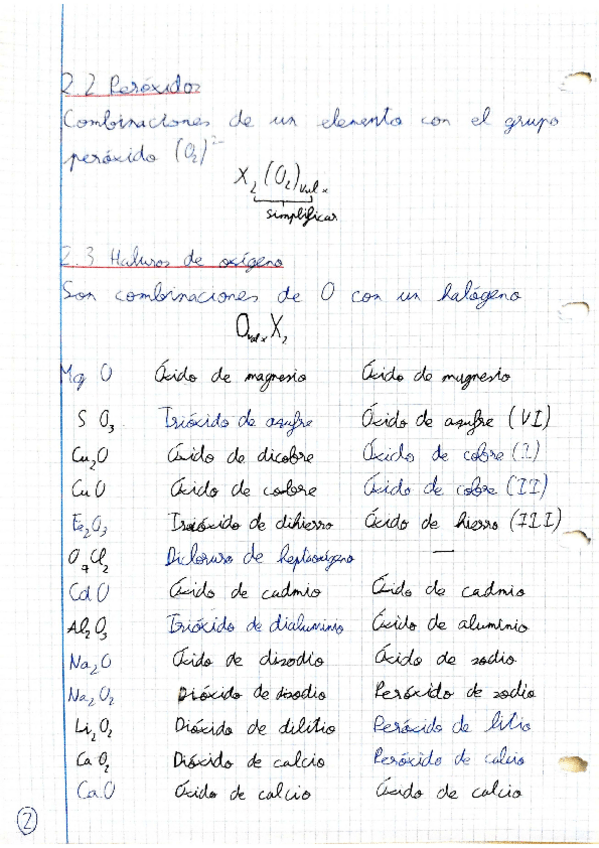 2.2 Peróxidos
Combinaciones de un elemento con el grupo
peróxido (O₂)²⁻
X₂(O₂)val x
simplificar
2.3 Haluros de oxígeno
Son combinaciones de O con un halógeno
Oval x X₂
MgO Óxido de magnesio Óxido de magnesio
SO₃ Trióxido de azufre Óxido de azufre (VI)
Cu₂O Óxido de dicobre Óxido de cobre (I)
CuO Óxido de cobre Óxido de cobre (II)
Fe₂O₃ Trióxido de dihierro Óxido de hierro (III)
O₇Cl₂ Dicloruro de heptaoxígeno —
CdO Óxido de cadmio Óxido de cadmio
Al₂O₃ Trióxido de dialuminio Óxido de aluminio
Na₂O Óxido de disodio Óxido de sodio
Na₂O₂ Dióxido de disodio Peróxido de sodio
Li₂O₂ Dióxido de dilitio Peróxido de litio
CaO₂ Dióxido de calcio Peróxido de calcio
CaO Óxido de calcio Óxido de calcio
2